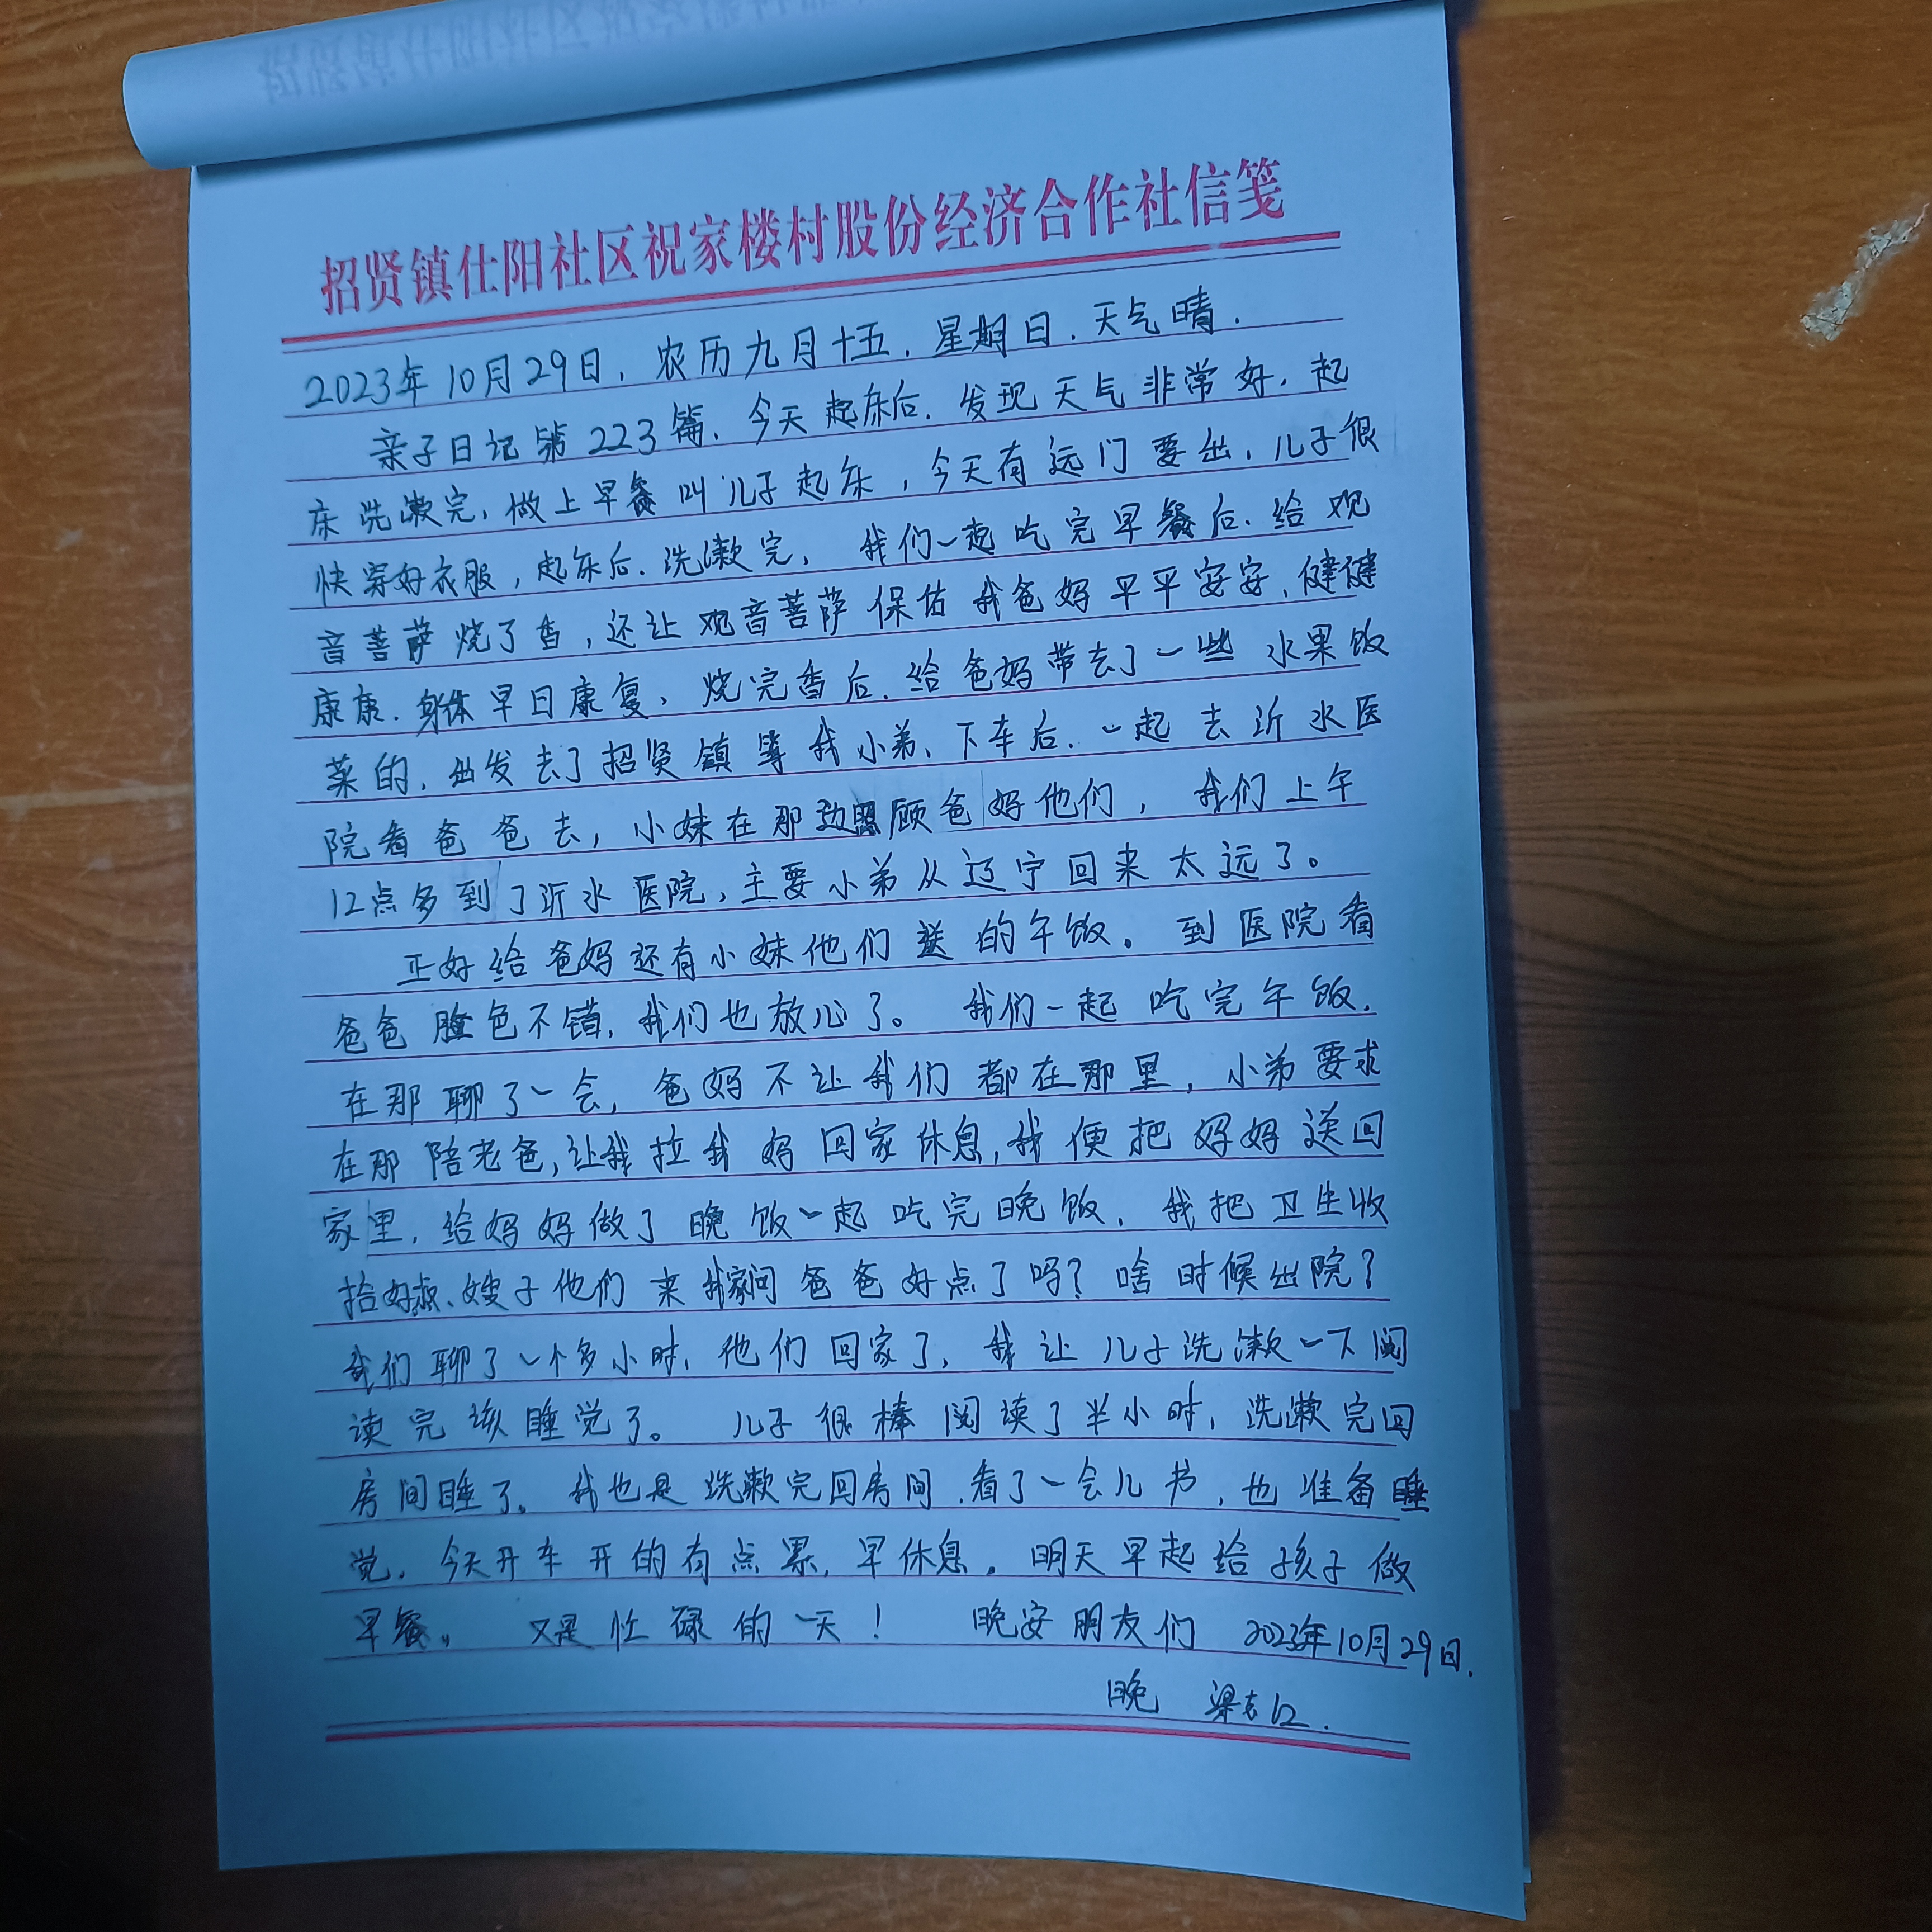 招贤镇仕阳社区祝家楼村股份经济合作社信笺
2023年10月29日，农历九月十五，星期日，天气晴．
亲子日记第223篇，今天起床后，发现天气非常好，起
床洗漱完，做上早餐叫儿子起床，今天有远门要出，儿子很
快穿好衣服，起床后，洗漱完，我们一起吃完早餐后，给观
音菩萨烧了香，还让观音菩萨保佑我爸妈平平安安，健健
康康，身体早日康复，烧完香后，给爸妈带去了一些水果饭
菜的，出发去了招贤镇等我小弟，下车后，一起去沂水医
院看爸爸去，小妹在那边照顾爸妈他们，我们上午
12点多到了沂水医院，主要小弟从辽宁回来太远了。
正好给爸妈还有小妹他们送的午饭。到医院看
爸爸脸色不错，我们也放心了。我们一起吃完午饭，
在那聊了一会，爸妈不让我们都在那里，小弟要求
在那陪老爸，让我拉我妈回家休息，我便把妈妈送回
家里，给妈妈做了晚饭一起吃完晚饭，我把卫生收
拾好，嫂子他们来我家问爸爸好点了吗？啥时候出院？
我们聊了一个多小时，他们回家了，我让儿子洗漱一下阅
读完该睡觉了。儿子很棒阅读了半小时，洗漱完回
房间睡了。我也是洗漱完回房间，看了一会儿书，也准备睡
觉，今天开车开的有点累，早休息。明天早起给孩子做
早餐。又是忙碌的一天！晚安朋友们 2023年10月29日．
晚